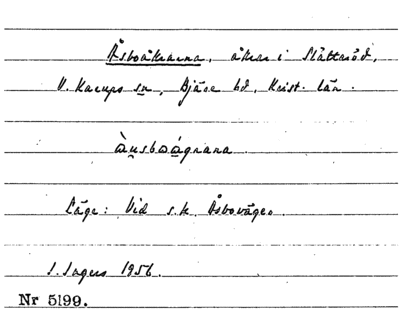 Åsboåkrarna, åkrar i Slättaröd,
V. Karups sn, Bjäre hd, Krist. län.
àu̯sbωágrana
Läge: Vid s.k. Åsbovägen.
I. Ingers 1956.
Nr 5199.